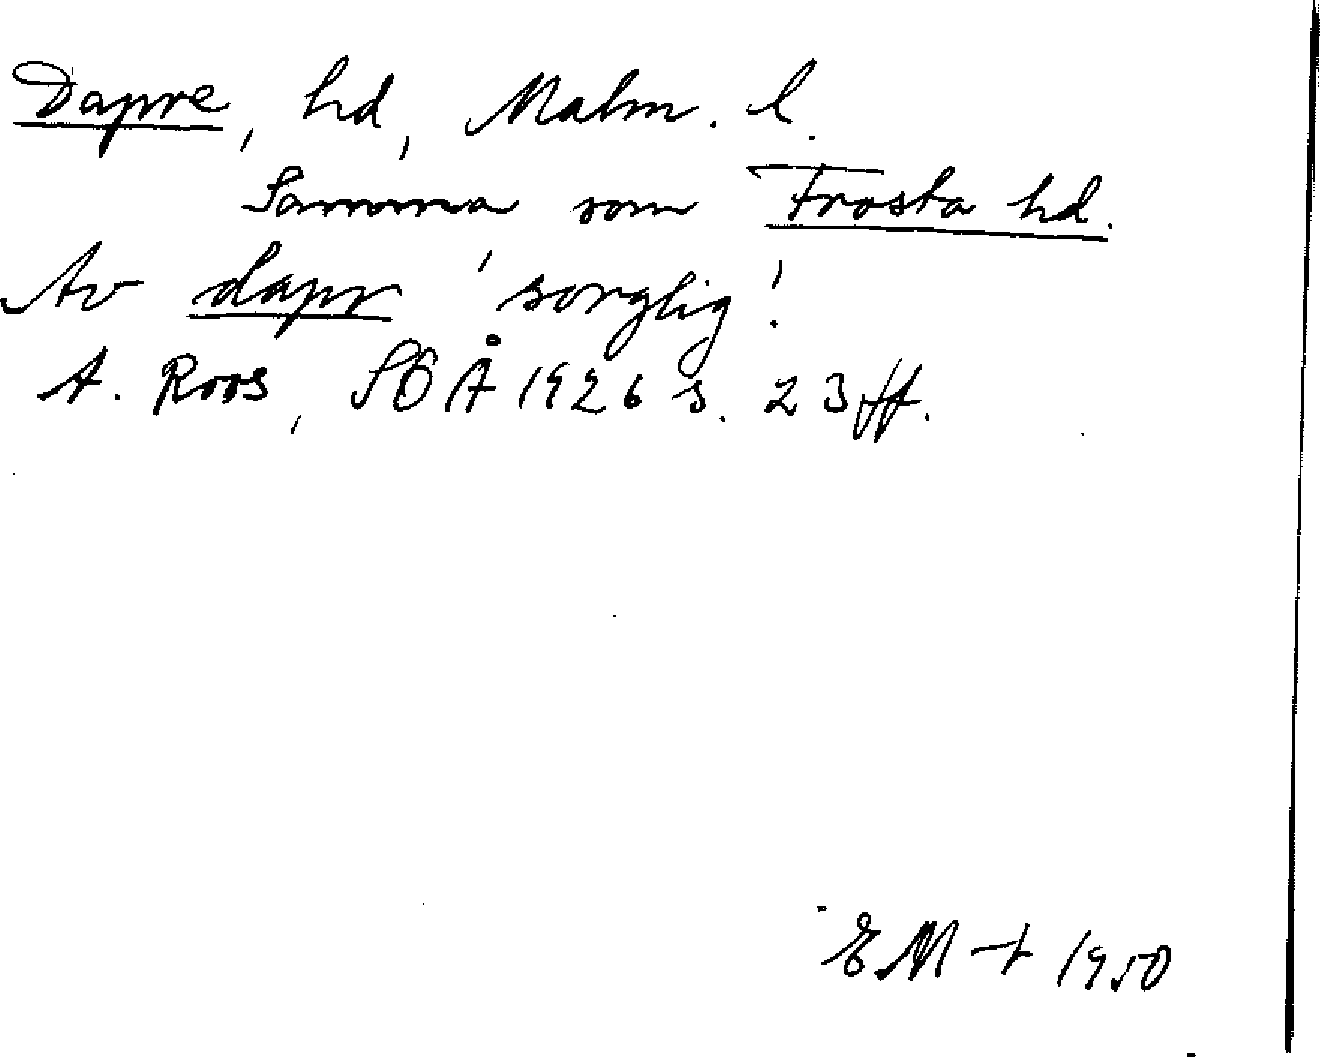 Dapre, hd, Malm. l.
Samma som Frosta hd.
Av dapr 'sorglig'.
A. Roos, SOÅ 1926 s. 23 ff.
EM-t 1950